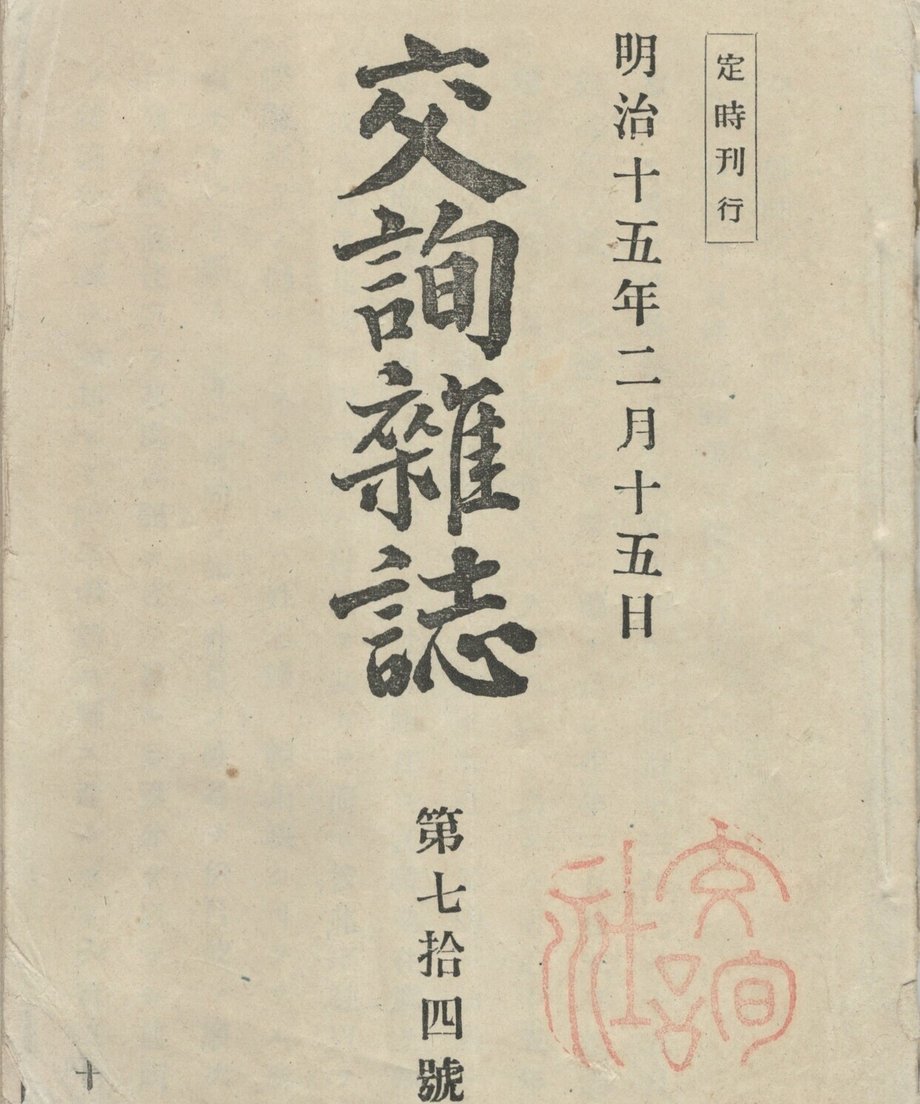 定時刊行
明治十五年二月十五日
交詢雜誌
第七拾四號
交詢社
十